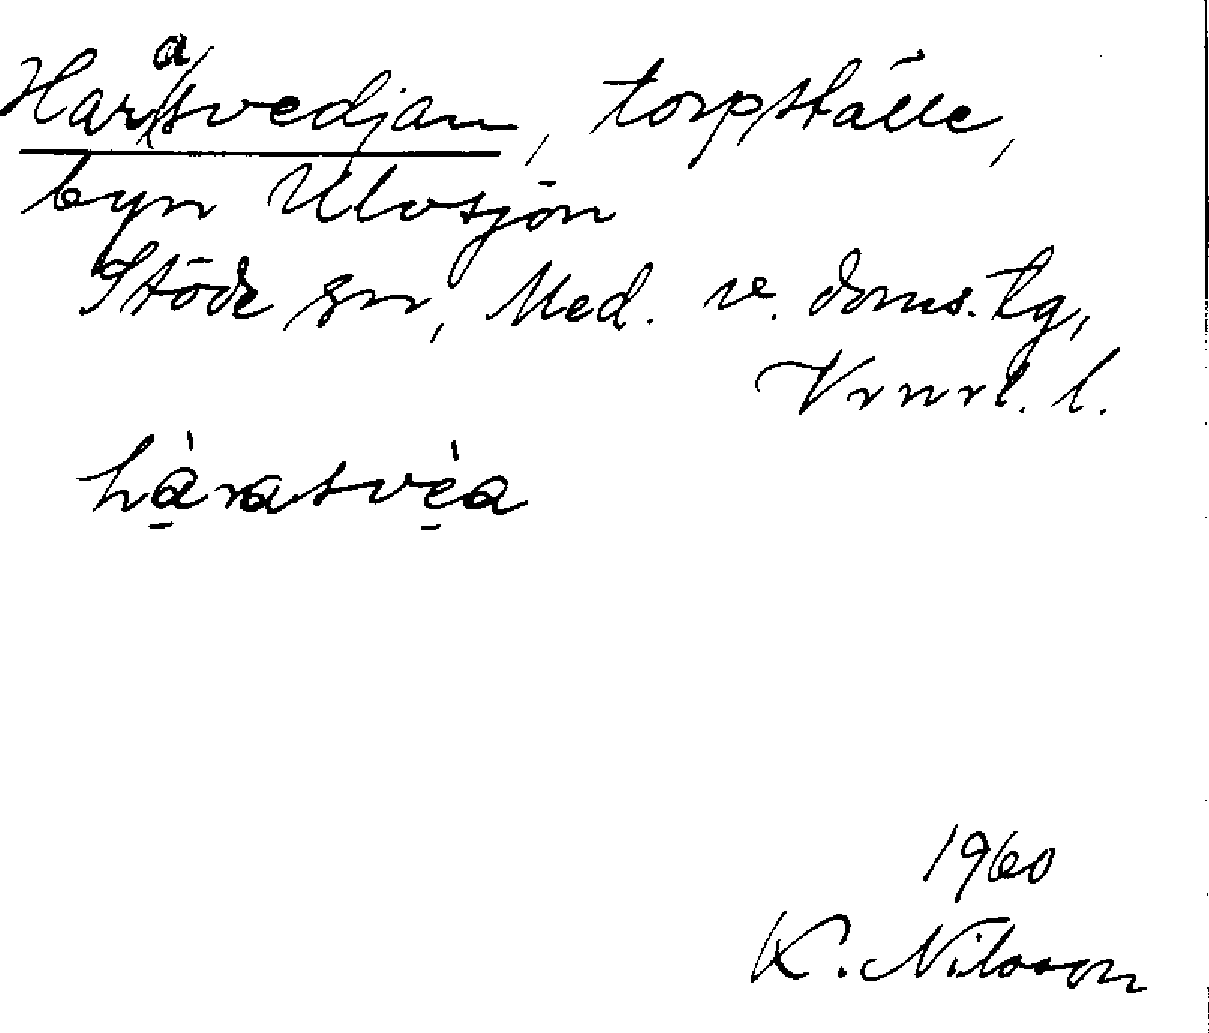 Harasvedjan, torpställe,
byn Ulvsjön
Stöde sn, Med. v. doms. tg,
Vrnrl. l.
hàrasvèa
1960
K. Nilsson